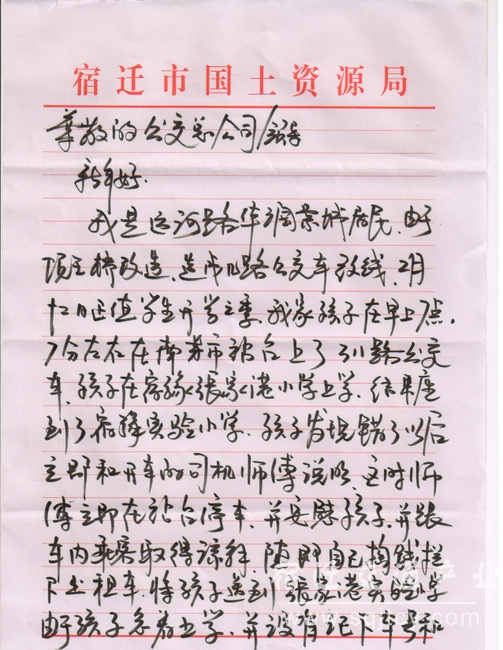 宿迁市国土资源局
尊敬的公交总公司领导
新年好.
我是运河路华润景城居民,由于
项王桥改造,造成几路公交车改线,2月
12日正值学生开学之季,我家孩子在早上7点,
7分左右在南菜市站台上了31路公交
车,孩子在宿豫张家港小学上学,结果座
到了宿豫实验小学,孩子发现错了以后
立即和开车的司机师傅说明,这时师
傅立即在站台停车,并安慰孩子,并跟
车内乘客取得谅解,随即自己掏钱拦
下出租车,将孩子送到张家港实验小学
由于孩子急着上学,并没有记下车号和